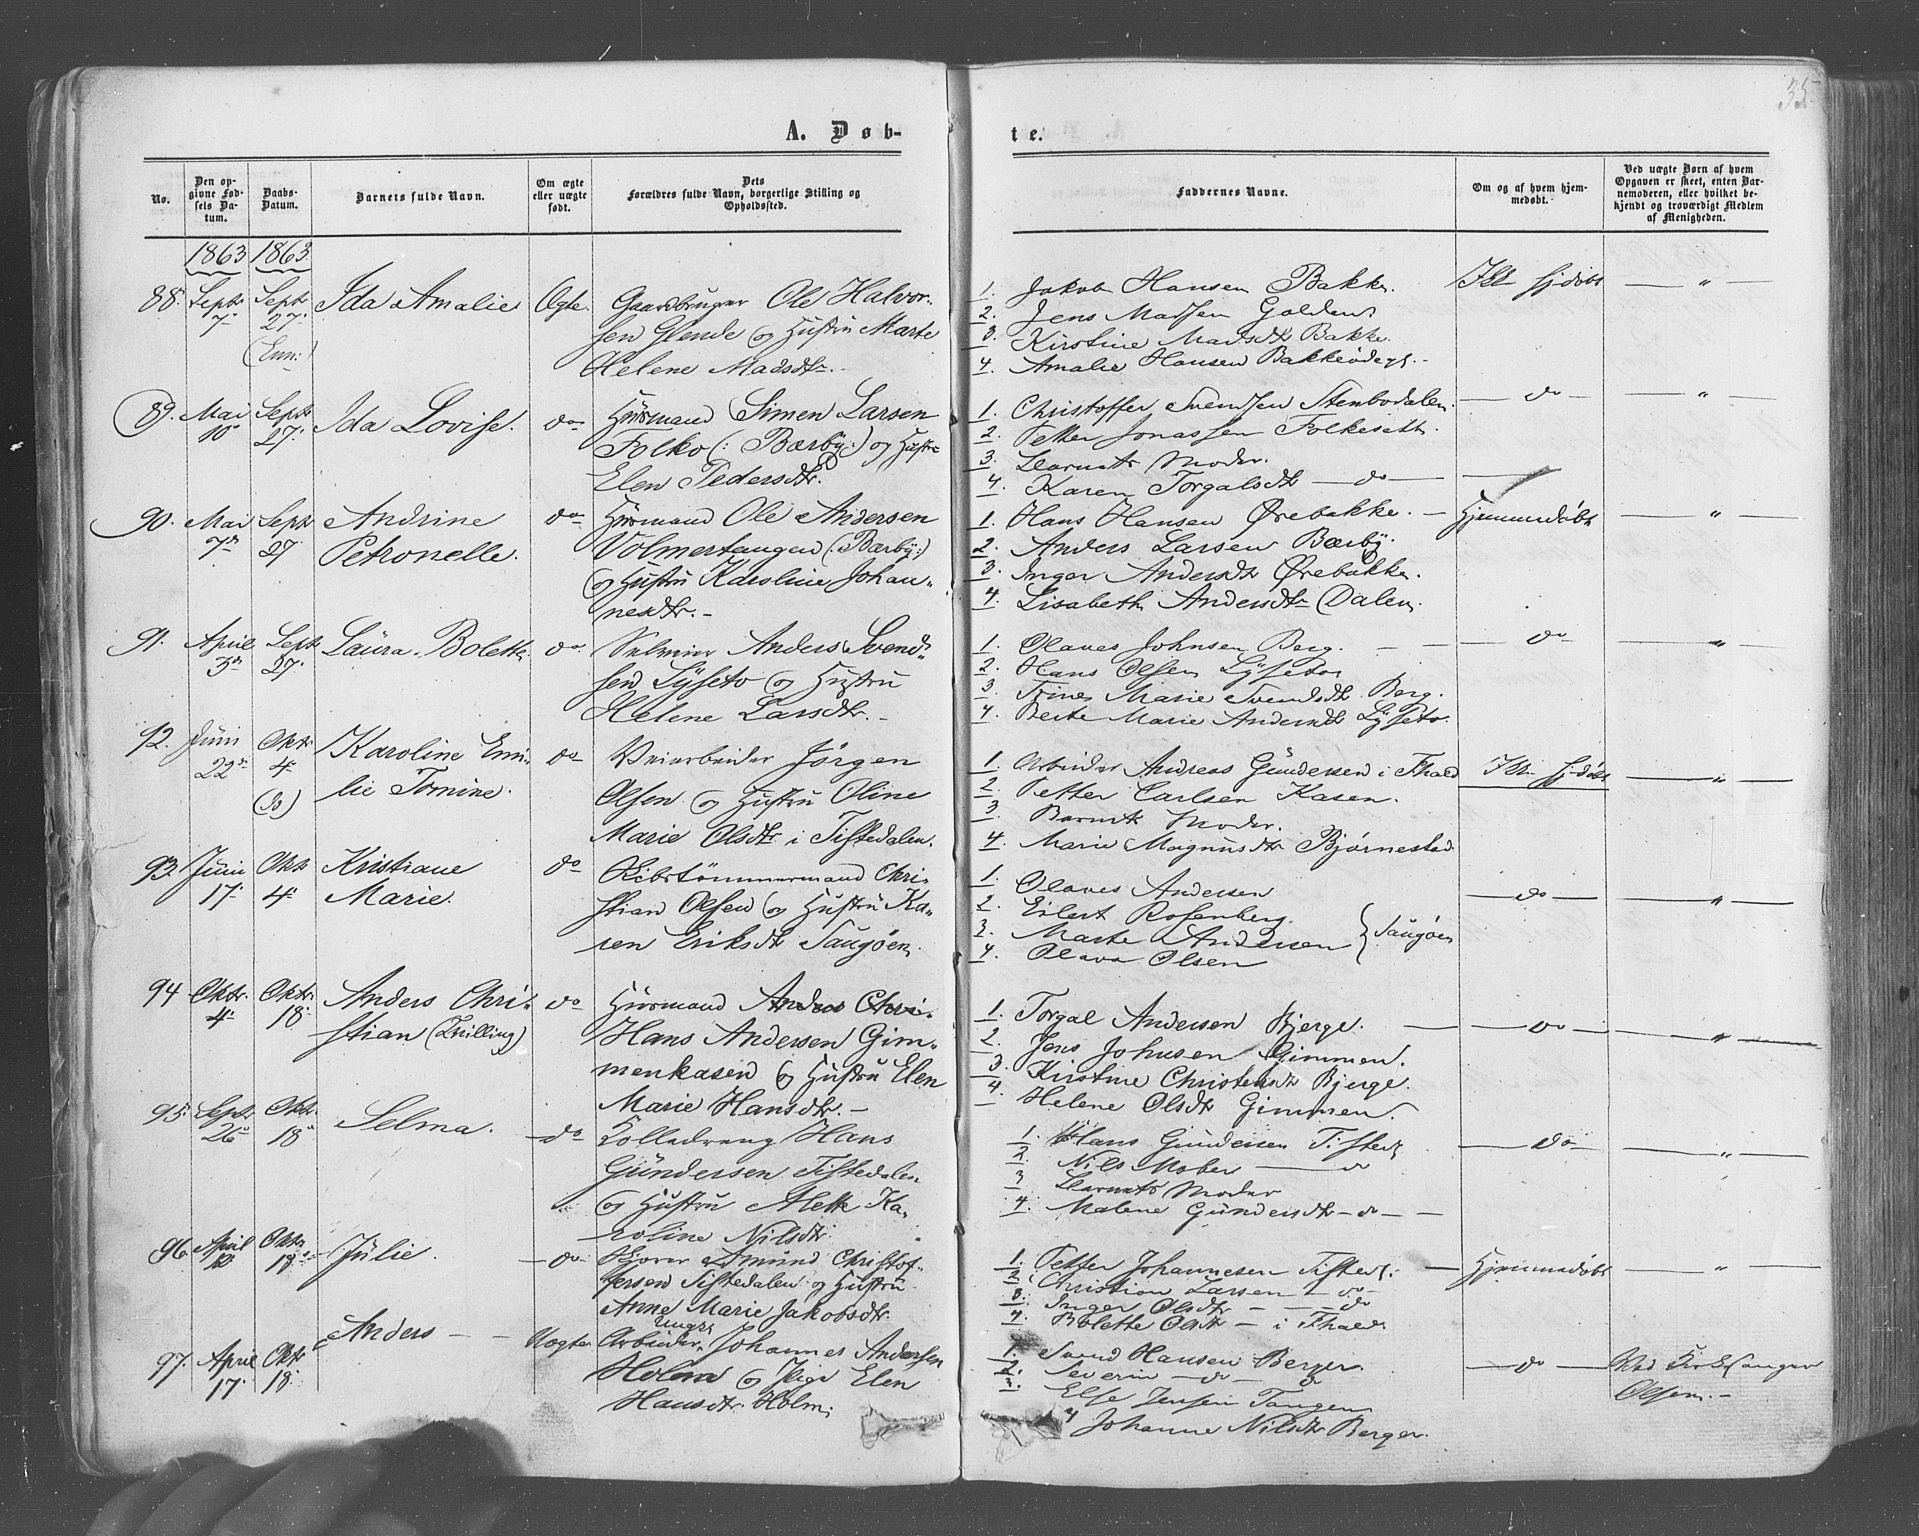 35
A. Døb-
te.
No.
Den op-
givne Fød-
sels Da-
tum.
Daabs-
Datum.
Barnets fulde Navn.
Om ægte
eller uægte
født.
Dets
Forældres fulde Navn, borgerlige Stilling og
Opholdssted.
Faddernes Navne.
Om og af hvem hjem-
medøbt.
Ved uægte Børn af hvem
Opgaven er skeet, enten Bar-
nemoderen, eller hvilket be-
kjendt og troværdigt Medlem
af Menigheden.
1863 1863
88. Septr 7 Septr 27 Ida Amalie Ægte. Gaardbruger Ole Halvor-
sen Glende og Hustru Marte
Helene Madsdtr.
1. Jakob Hansen Bakke. Ikke hjdøbt — " —
2. Jens Madsen
3. Kirstine Madsdtr Bakke.
4. Amalie Hansen
89. Mai 10 Septr 27 Ida Lovise. do Huusmand Simen Larsen
Folko (: Bærby:) og Hustru
Elen Pedersdtr.
1. Christoffer Svendsen Stenbodalen. — do — — " —
2. Petter Jonassen
3. Barnets Moder.
4. Karen Torgalsdtr — do —
90. Mai 7de Septr 27 Andrine
Petronelle. do Huusmand Ole Andersen
Volmertangen (: Bærby:)
og Hustru Karoline Johan-
nesdtr. -
1. Hans Hansen Ørebakke. - Hjemmedøbt — " —
2. Anders Larsen Bærby.
3. Inger Andersdtr Ørebakke.
4. Lisabeth Andersdtr Dalen.
91. April 3de Septr 27 Laura Bolette do Anders Svend-
sen Lyseto og Hustru
Helene Larsdtr. -
1. Olaves Johnsen Berg. — do — — " —
2. Hans Olsen
3. Trine Marie Svendsdtr Berg.
4. Berte Marie Andersdtr Lyseto.
92. Juni 22de Oktr 4 (do) Karoline Emi-
lie Tomine. do Veiarbeider Jørgen
Olsen og Hustru Oline
Marie Olsdtr i Tistedalen.
1. Arbeider Andreas Gundersen i Fhald Ikke hjdøbt — " —
2. Petter Carlsen Kasen.
3. Barnets Moder.
4. Marie Magnusdtr Bjørnestad
93. Juni 17 Okt 4 Kristiane
Marie. do Skibstømmermand Chri-
stian Olsen og Hustru Ka-
ren Eriksdtr Saugøen.
1. Olaves Andersen — do — — " —
2. Eilert Rosenberg.
3. Marte Andersen } Saugøen
4. Olava Olsen
94 Oktr 4 Oktr 18 Anders Chri-
stian (Tvilling) do Huusmand Anders Chri-
Hans Andersen Gim-
menkasen og Hustru Elen
Marie Hansdtr. -
1. Torgal Andersen Bjerge. — do — — " —
2. Jens Johnsen Gimmen.
3. Kirstine Christensdtr Bjerge.
4. Helene Olsdtr Gimmen.
95. Septr 26 Oktr 18 Selma. do Hans
Gundersen Tistedalen
og Hustru Alette Ka-
roline Nilsdtr.
1. Hans Gundersen Tistedl — do — — " —
2. Nils Mober — do
3. Barnets Moder
4. Malene Gundersdtr - do -
96. April Oktr 18 Julie. do Amund Christof-
fersen Tistedalen og Hustru
Anne Marie Jakobsdtr.
1. Petter Johannesen Tistedl. — Hjemmedøbt — " —
2. Christian Larsen - do -
3. Inger Olsdtr - - do
4. Bolette Olsdtr - i Fhald.
97. April 17 Oktr 18 Anders - - Uægte Ungk.
Arbeider Johannes Andersen
Holm og Pige Elen
Hansdtr. Holm.
1. Svend Hansen Berger. — do — Ved Kirkesanger
2. Severin do do Olsen. -
3. Else Jensen Tangen
4 Johanne Nilsdtr Berger.